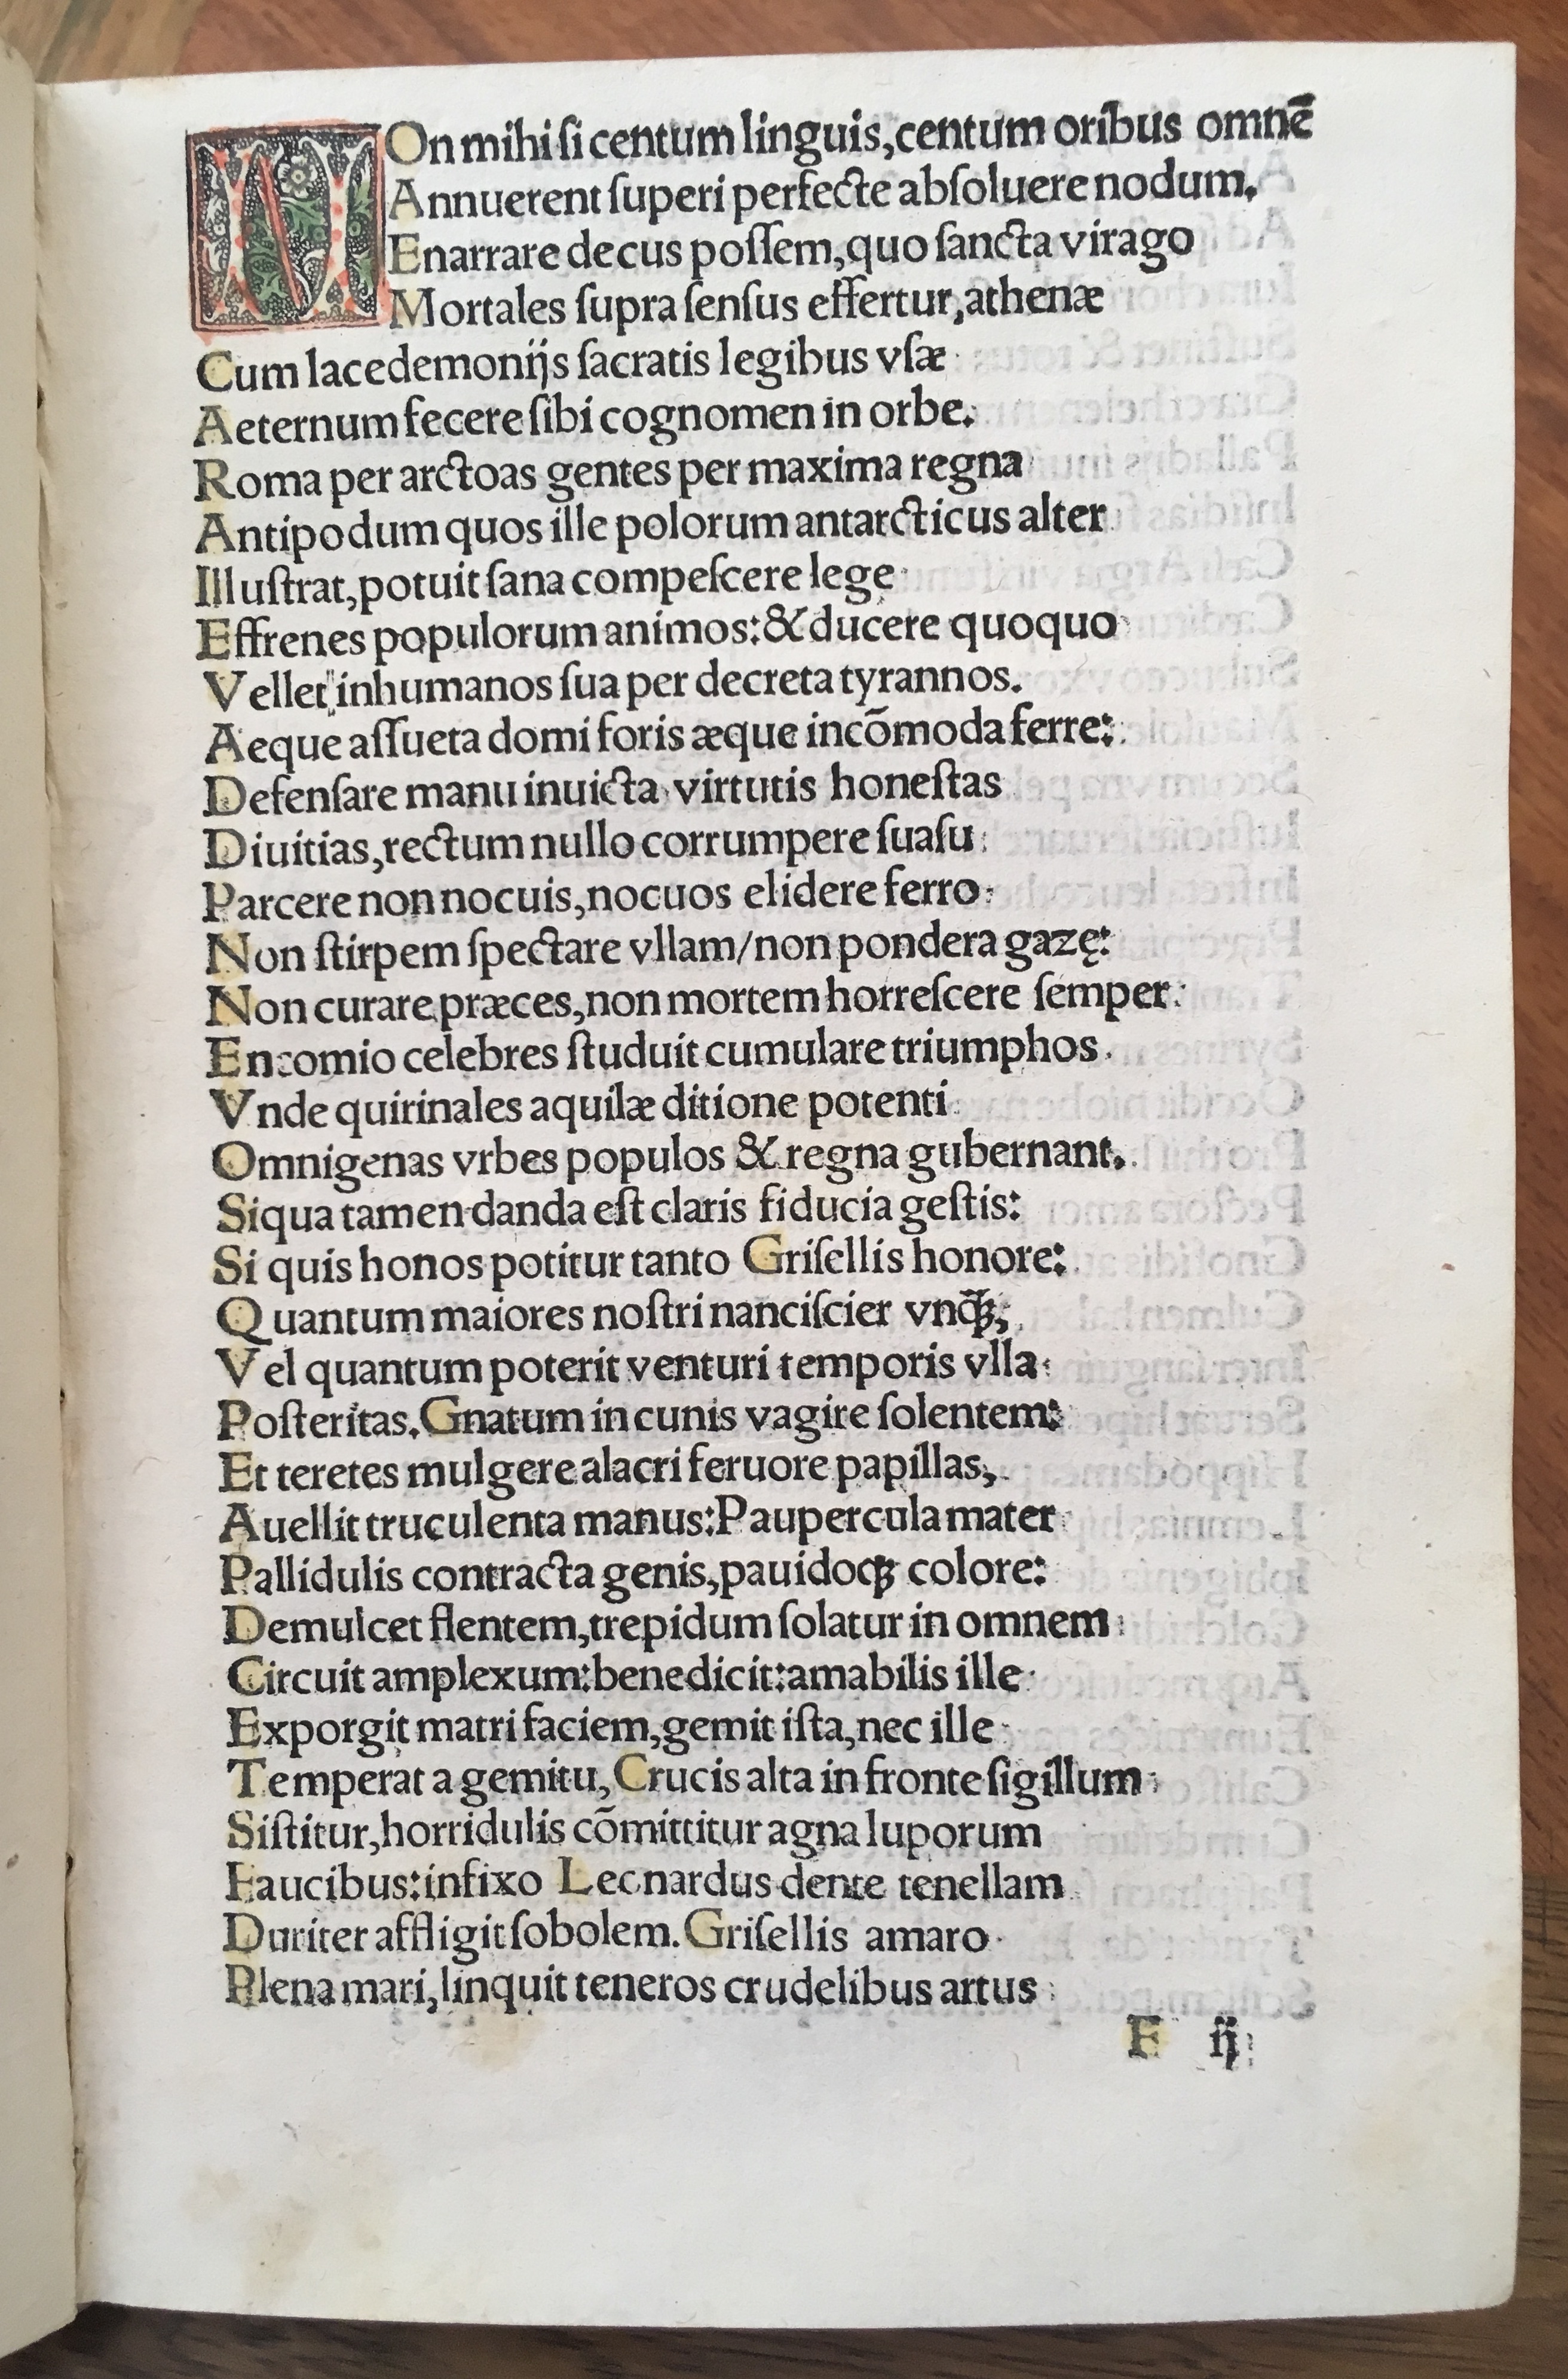 NOn mihi ſi centum linguis,centum oribus omnē
Annuerent ſuperi perfecte abſoluere nodum.
Enarrare decus poſſem,quo ſancta virago
Mortales ſupra ſenſus effertur,athenæ
Cum lacedemonijs ſacratis legibus vſæ
Aeternum fecere ſibi cognomen in orbe.
Roma per arctoas gentes per maxima regna
Antipodum quos ille polorum antarcticus alter
Illuſtrat,potuit ſana compeſcere lege
Effrenes populorum animos:& ducere quoquo
Vellet inhumanos ſua per decreta tyrannos.
Aeque aſſueta domi foris æque incōmoda ferre:
Defenſare manu inuicta virtutis honeſtas
Diuitias,rectum nullo corrumpere ſuaſu
Parcere non nocuis,nocuos elidere ferro
Non ſtirpem ſpectare vllam/non pondera gazę:
Non curare præces,non mortem horreſcere ſemper
Encomio celebres ſtuduit cumulare triumphos.
Vnde quirinales aquilæ ditione potenti
Omnigenas vrbes populos & regna gubernant.
Siqua tamen danda eſt claris fiducia geſtis:
Si quis honos potitur tanto Griſellis honore:
Quantum maiores noſtri nanciſcier vnq̄ꝫ,
Vel quantum poterit venturi temporis vlla
Poſteritas.Gnatum in cunis vagire ſolentem:
Et teretes mulgere alacri feruore papillas,
Auellit truculenta manus:Paupercula mater
Pallidulis contracta genis,pauidoqꝫ colore:
Demulcet flentem,trepidum ſolatur in omnem
Circuit amplexum:benedicit:amabilis ille
Exporgit matri faciem,gemit iſta,nec ille
Temperat a gemitu,Crucis alta in fronte ſigillum
Siſtitur,horridulis cōmittitur agna luporum
Faucibus:infixo Leonardus dente tenellam
Duriter affligit ſobolem.Griſellis amaro
Plena mari,linquit teneros crudelibus artus
F ij